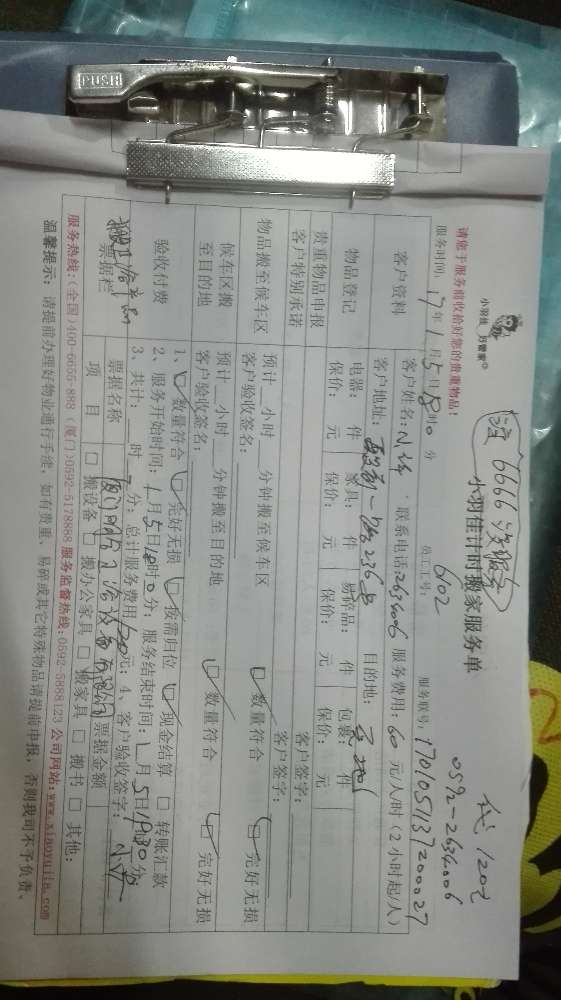 代1202
0592-2634006
小羽佳 好管家
小羽佳计时搬家服务单
请您于服务前收拾好您的贵重物品!
6102
服务时间: 17年1月5日18时0分 员工工号: 服务联号: 17010513720027
客户资料 客户姓名: 联系电话: 2634006 服务费用: 60元/人/时(2小时起/人)
客户地址: 目的地:
物品登记 电器: 件 家具: 件 易碎品: 件 包裹: 件
保价: 元 保价: 元 保价: 元 保价: 元
贵重物品申报 客户签字:
客户特别承诺 客户签字:
物品搬至候车区 预计 小时 分钟搬至候车区 ☑ 数量符合 ☑ 完好无损
客户验收签名:
候车区搬至目的地 预计 小时 分钟搬至目的地 ☑ 数量符合 ☑ 完好无损
客户验收签名:
验收付费 1、☑ 数量符合 ☑ 完好无损 ☑ 按需归位 ☑ 现金结算 □ 转账汇款
2、服务开始时间: 1月5日18时0分; 服务结束时间: 1月5日19时30分
3、共计: 时 分; 总计服务费用120元; 4、客户验收签字:
票据栏 票据名称 票据金额
项目 □ 搬设备 □ 搬办公家具 □ 搬家具 □ 搬书 □ 其他:
服务热线:(全国)400-6655-888 (厦门)0592-5178888 服务监督热线:0592-5888123 公司网站:www.xiaoyujia.com
温馨提示: 请提前办理好物业通行手续, 如有贵重、易碎或其它特殊物品请提前申报, 否则我司不予负责。
PUSH